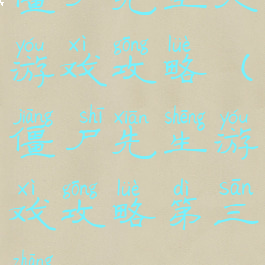 yóu xì gōng lüè
游戏攻略（
jiāng shī xiān shēng yóu
僵尸先生游
xì gōng lüè dì sān
戏攻略第三